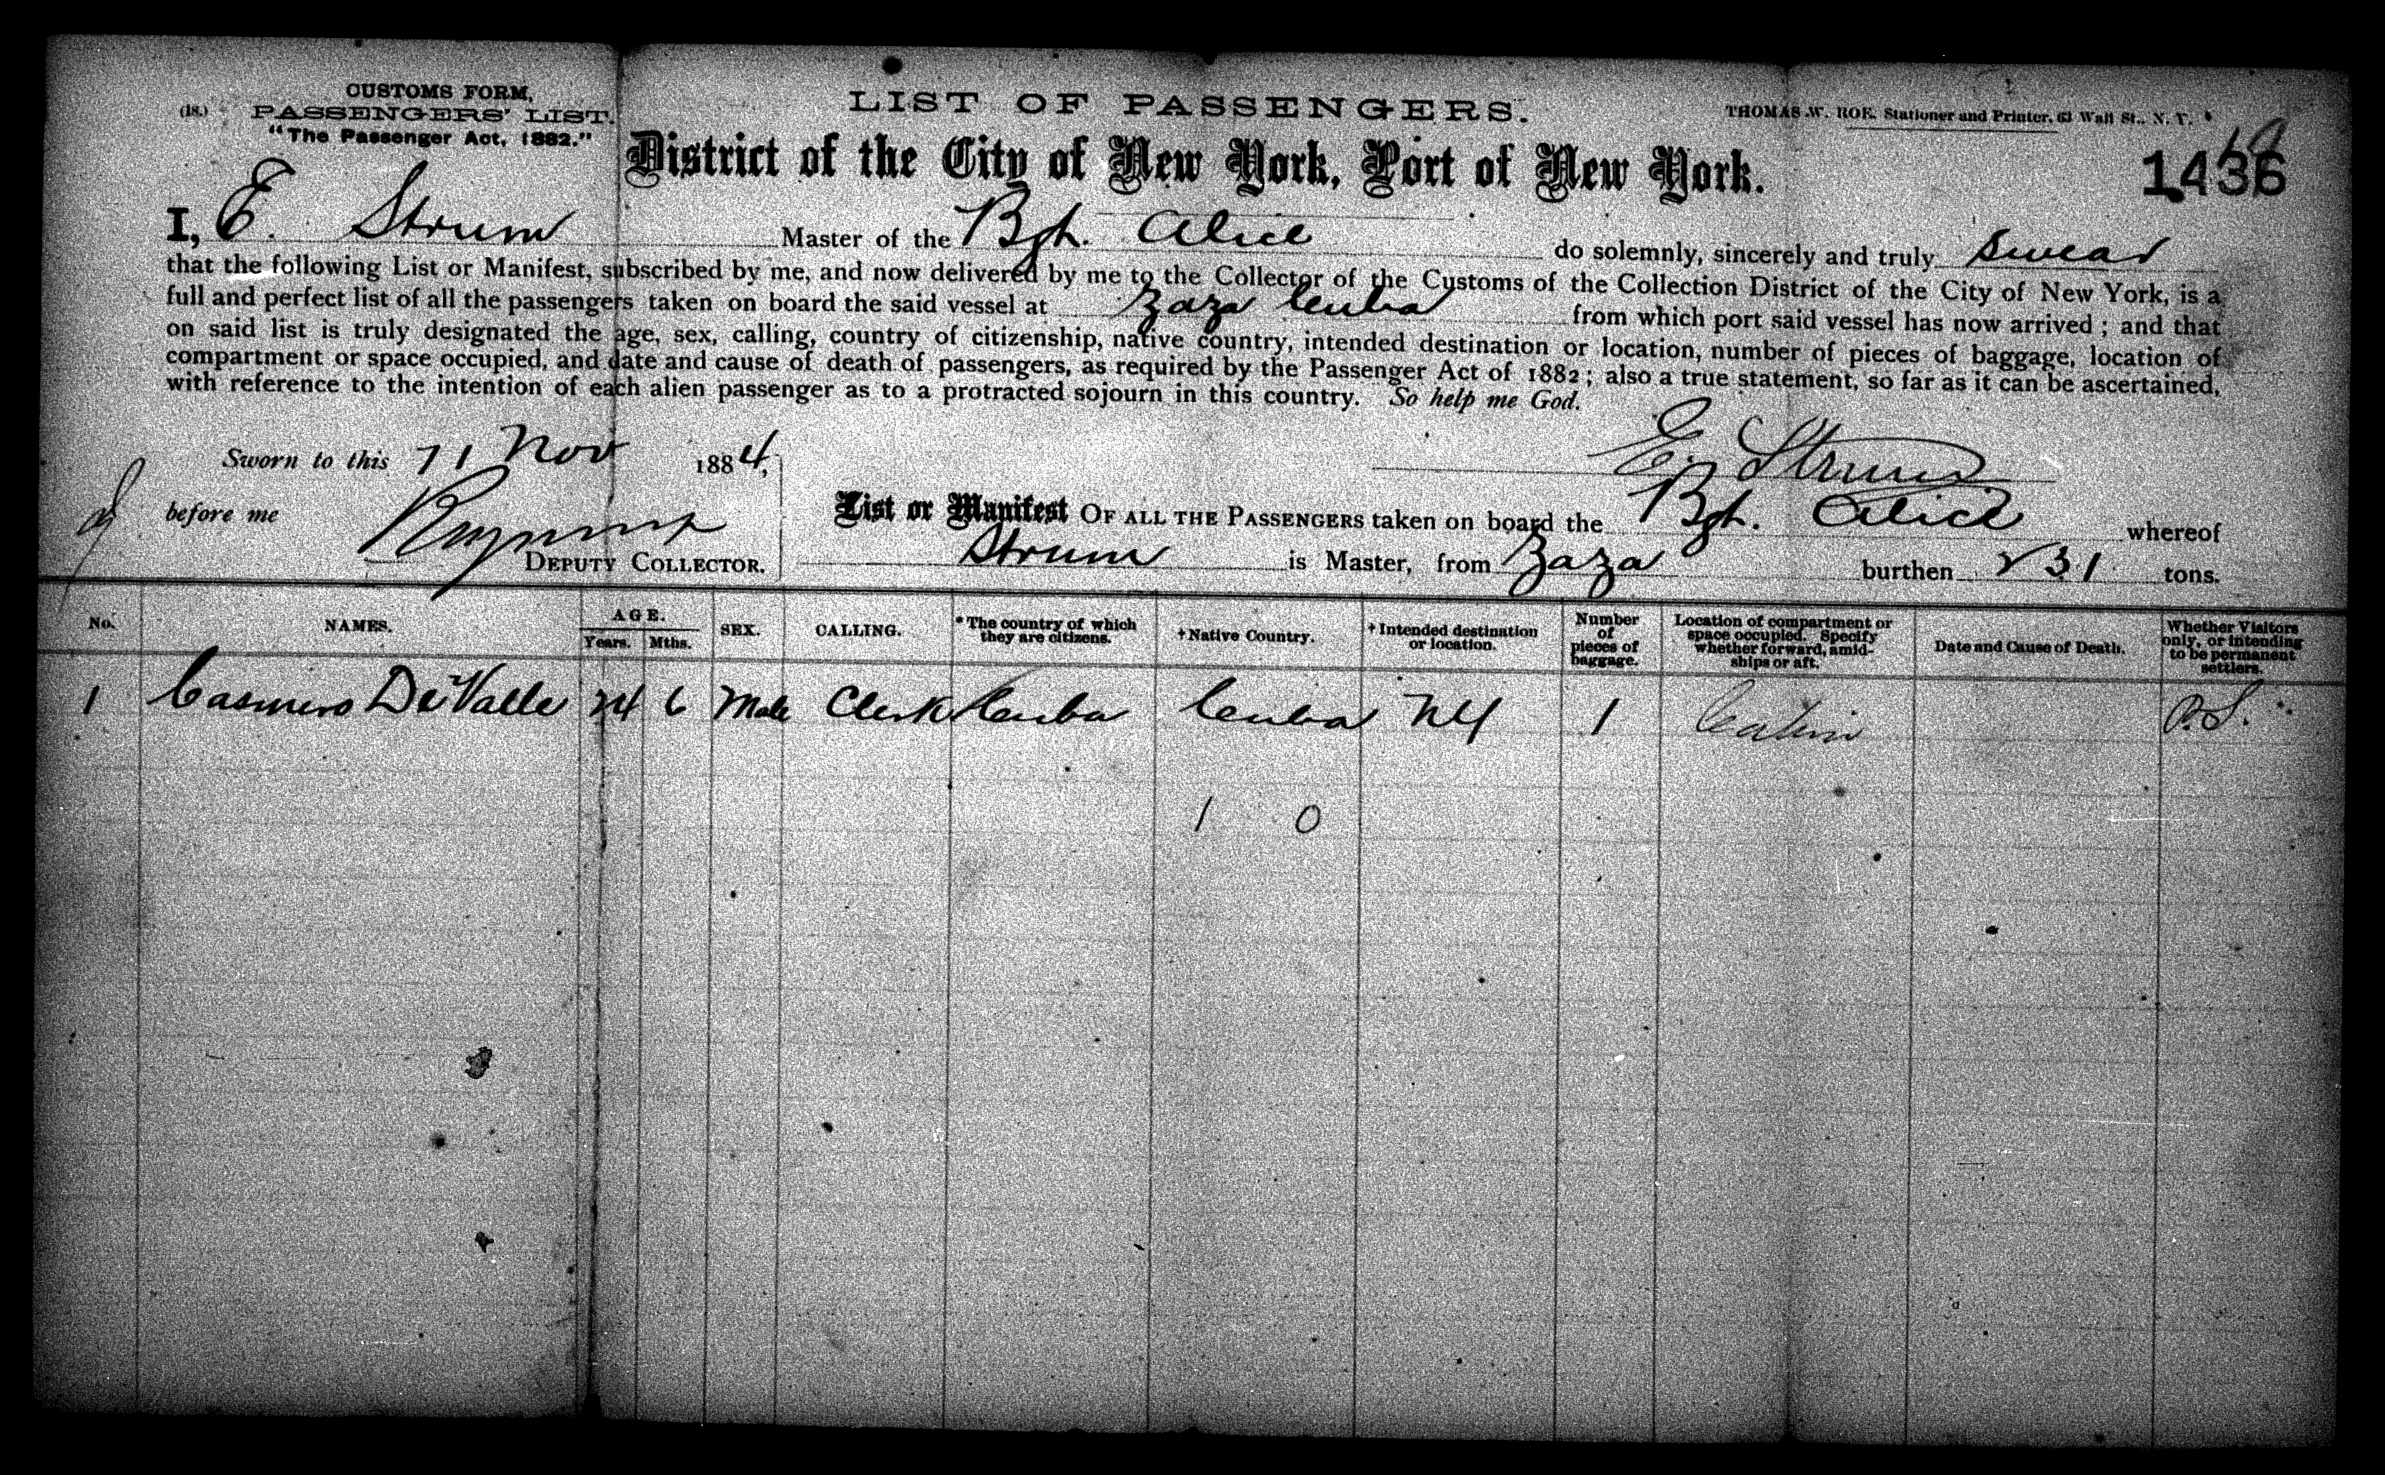 CUSTOMS FORM,
(18.) PASSENGERS' LIST.
"The Passenger Act, 1882."
LIST OF PASSENGERS.
THOMAS W. ROE, Stationer and Printer, 63 Wall St., N. Y.
District of the City of New York, Port of New York.
1436
I, E. Strum Master of the Bgh. Alice do solemnly, sincerely and truly swear
that the following List or Manifest, subscribed by me, and now delivered by me to the Collector of the Customs of the Collection District of the City of New York, is a
full and perfect list of all the passengers taken on board the said vessel at Zaza Cuba from which port said vessel has now arrived; and that
on said list is truly designated the age, sex, calling, country of citizenship, native country, intended destination or location, number of pieces of baggage, location of
compartment or space occupied, and date and cause of death of passengers, as required by the Passenger Act of 1882; also a true statement, so far as it can be ascertained,
with reference to the intention of each alien passenger as to a protracted sojourn in this country. So help me God.
Sworn to this 11 Nov 1884,
E. Strum
before me
DEPUTY COLLECTOR.
List or Manifest OF ALL THE PASSENGERS taken on board the Bgh. Alice whereof
Strum is Master, from Zaza burthen 231 tons.
No. NAMES. AGE. Years. Mths. SEX. CALLING. *The country of which they are citizens. †Native Country. †Intended destination or location. Number of pieces of baggage. Location of compartment or space occupied. Specify whether forward, amidships or aft. Date and Cause of Death. Whether Visitors only, or intending to be permanent settlers.
1 Casimiro Del Valle 24 6 Male Clerk Cuba Cuba NY 1 Cabin P.S.
1 0